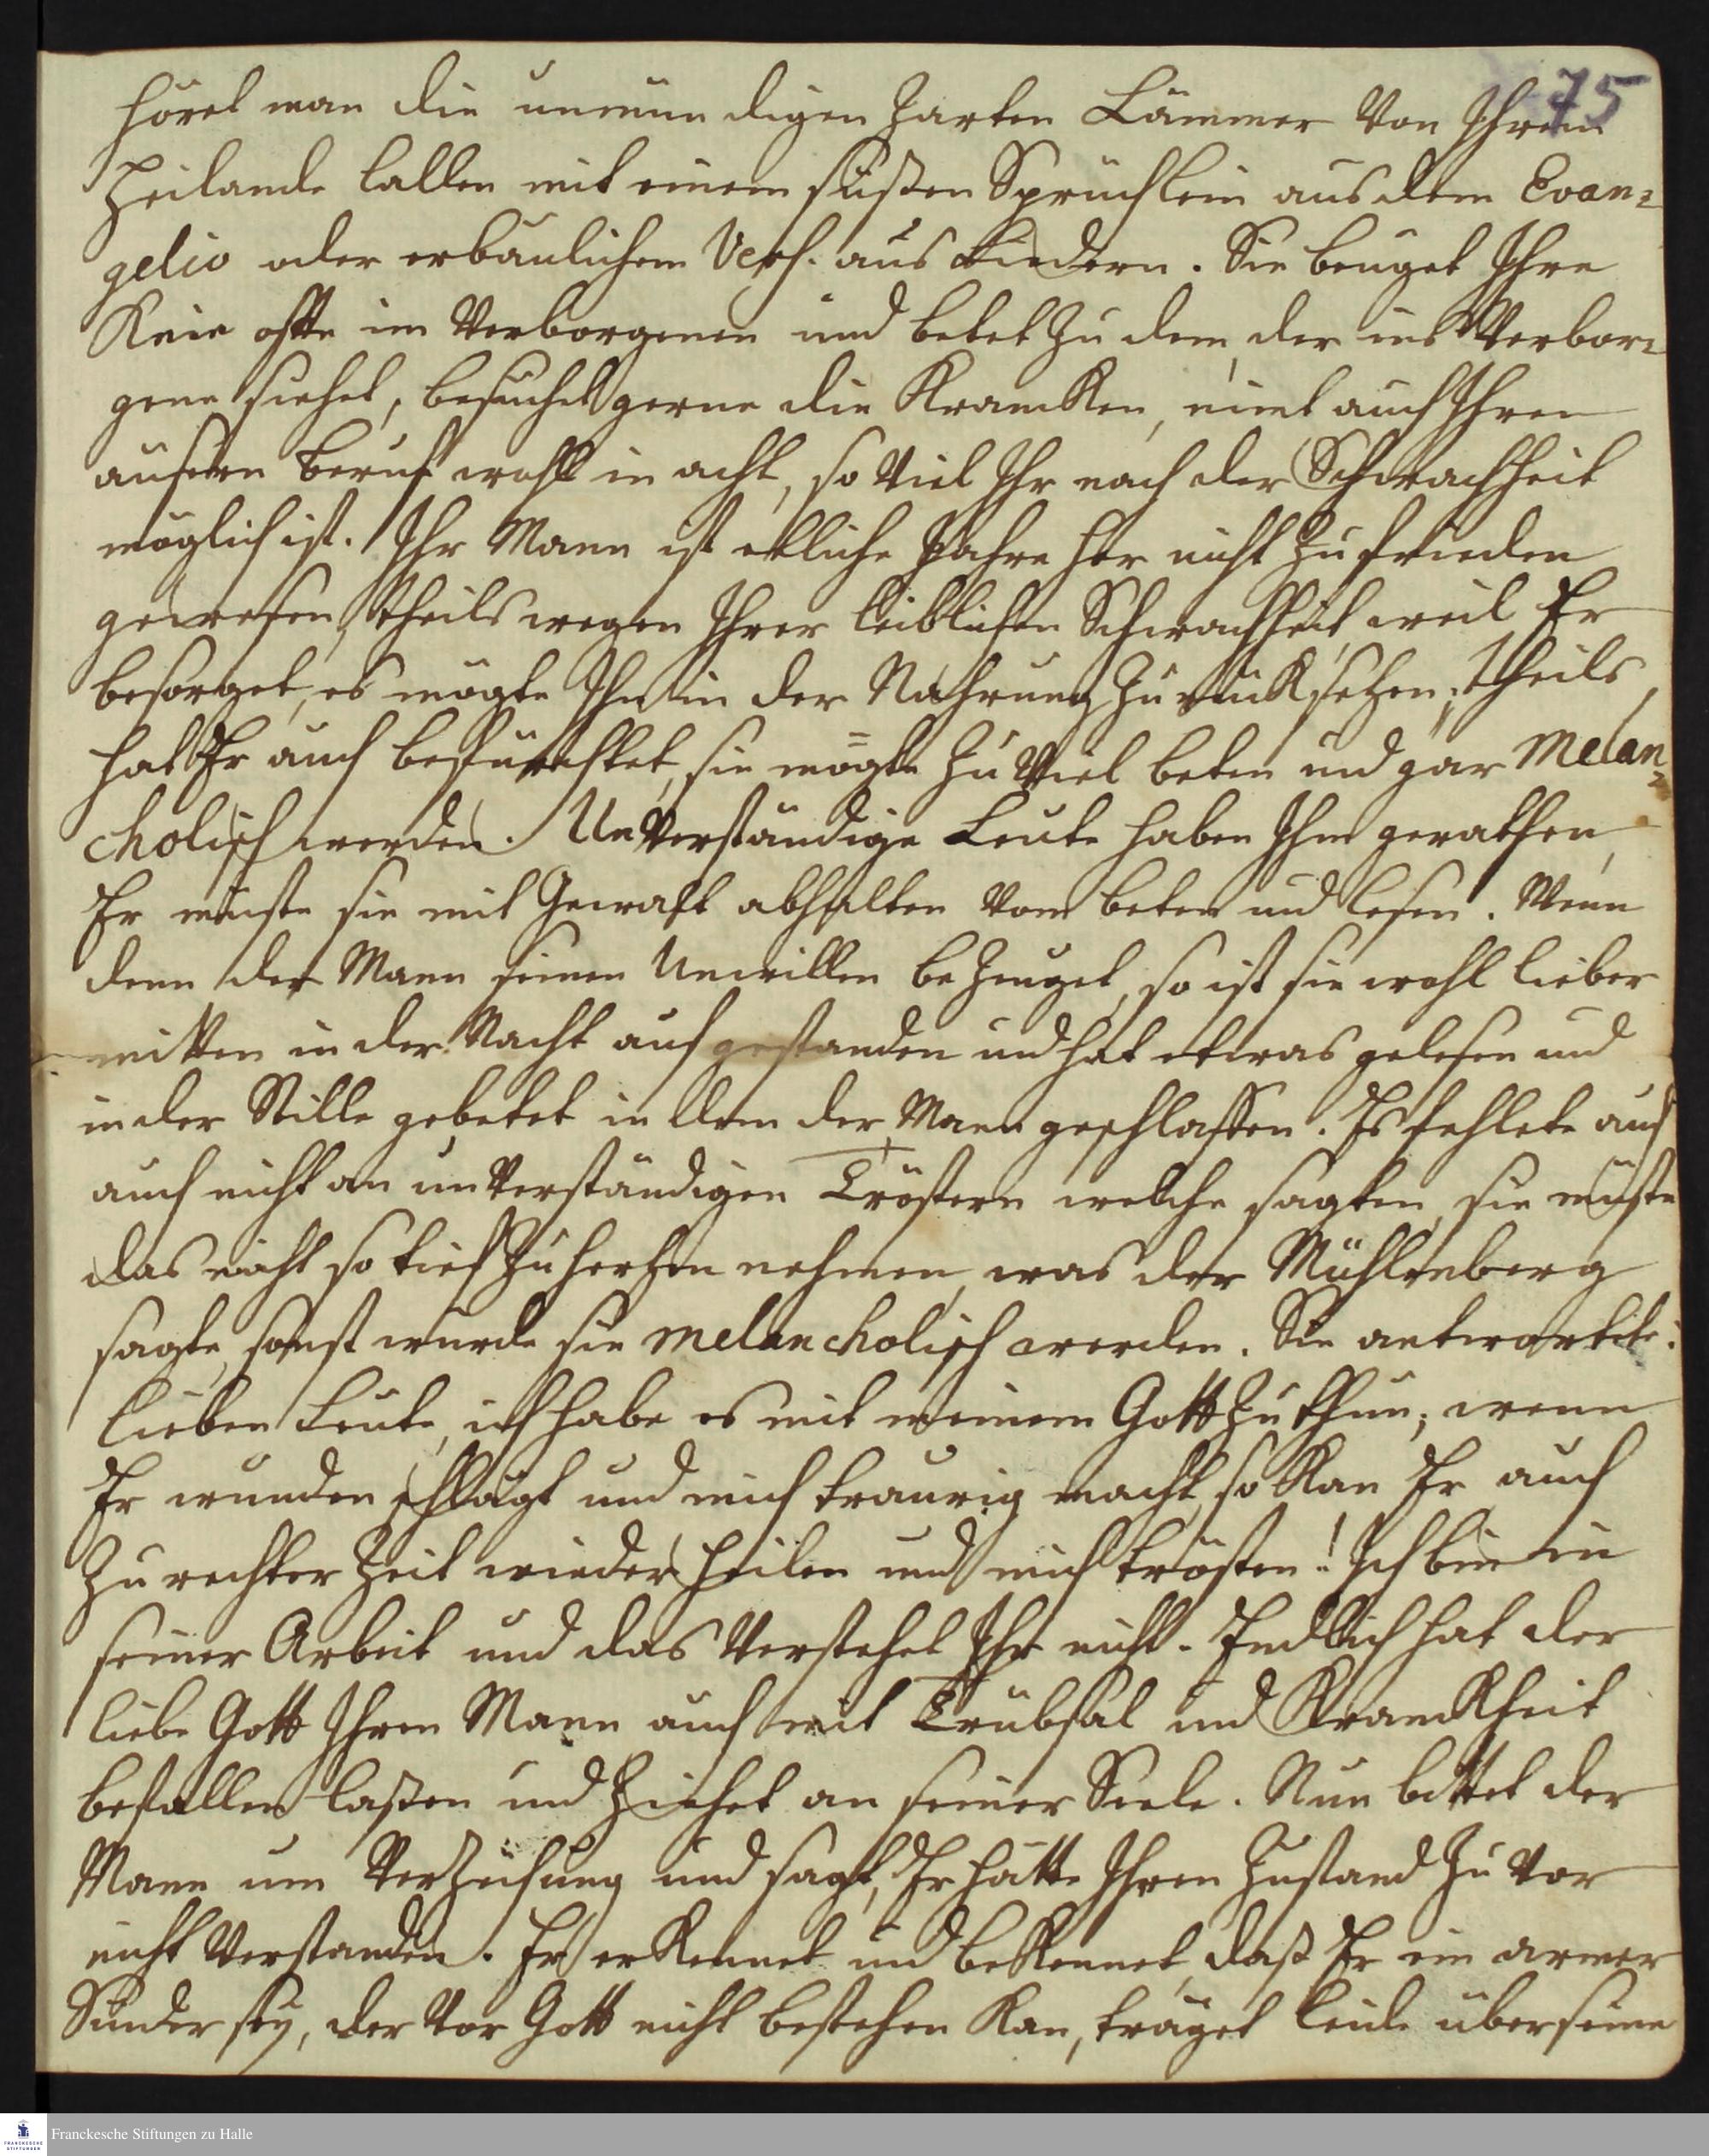 75
höret man die unmündigen zarten Lämmer von Ihrem
Heilande lallen mit einem süßen Sprüchlein aus dem Evan-
gelio oder erbaulichem Vers. aus Liedern. Sie beuget Ihre
Knie offte im Verborgenen und betet zu dem der ins Verbor-
gene siehet, besuchet gerne die Krancken, nimt auch Ihren
ausern Beruf wohl in acht, so viel Ihr nach der Schwachheit
möglich ist. Ihr Mann ist etliche Jahre her nicht zufrieden
gewesen, theils wegen Ihrer leiblichen Schwachheit, weil Er
besorget, es mögte Ihn in der Nahrung zurück setzen; theils
hat Er auch befürchtet, sie mögte zu viel beten und gar Melan-
cholisch werden. Unverständige Leute haben Ihm gerathen,
Er müste sie mit Gewalt abhalten vom beten und lesen. Wenn
denn der Mann seinen Unwillen bezeuget, so ist sie wohl lieber
mitten in der Nacht aufgestanden und hat etwas gelesen und
in der Stille gebetet in dem der Mann geschlaffen. Es fehlete auch
auch nicht an unverständigen Tröstern welche sagten, sie müste
das nicht so tief zu hertzen nehmen, was der Mühlenberg
sagte, sonst würde sie melancholisch werden. Sie antwortete:
lieben Leute, ich habe es mit meinem Gott zu thun; wenn
Er wunden schlägt und mich traurig macht, so kan Er auch
zu rechter Zeit wieder heilen und mich trösten! Ich bin in
seiner Arbeit und das verstehet Ihr nicht. Endlich hat der
liebe Gott Ihren Mann auch mit Trübsal und Kranckheit
befallen laßen und ziehet an seiner Seele. Nun bittet der
Mann um Verzeihung und sagt, Er hätte Ihren Zustand zu vor
nicht verstanden. Er erkennet und bekennet, daß Er ein armer
Sünder sey, der vor Gott nicht bestehen kan, träget leide über seine
Franckesche Stiftungen zu Halle
FRANCKESCHE STIFTUNGEN